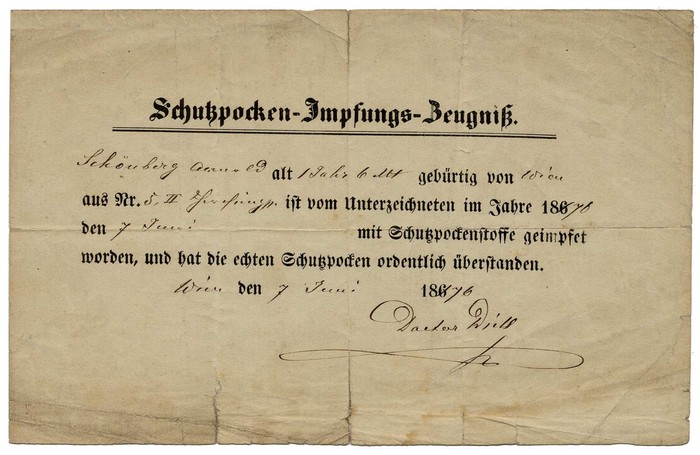 Schutzpocken-Impfungs-Zeugniß.
Schönberg Arnold alt 1 Jahr 6 Mt gebürtig von Wien
aus Nr. 5 II ist vom Unterzeichneten im Jahre 1876
den 7 Juni mit Schutzpockenstoffe geimpfet
worden, und hat die echten Schutzpocken ordentlich überstanden.
Wien den 7 Juni 1876
Doctor